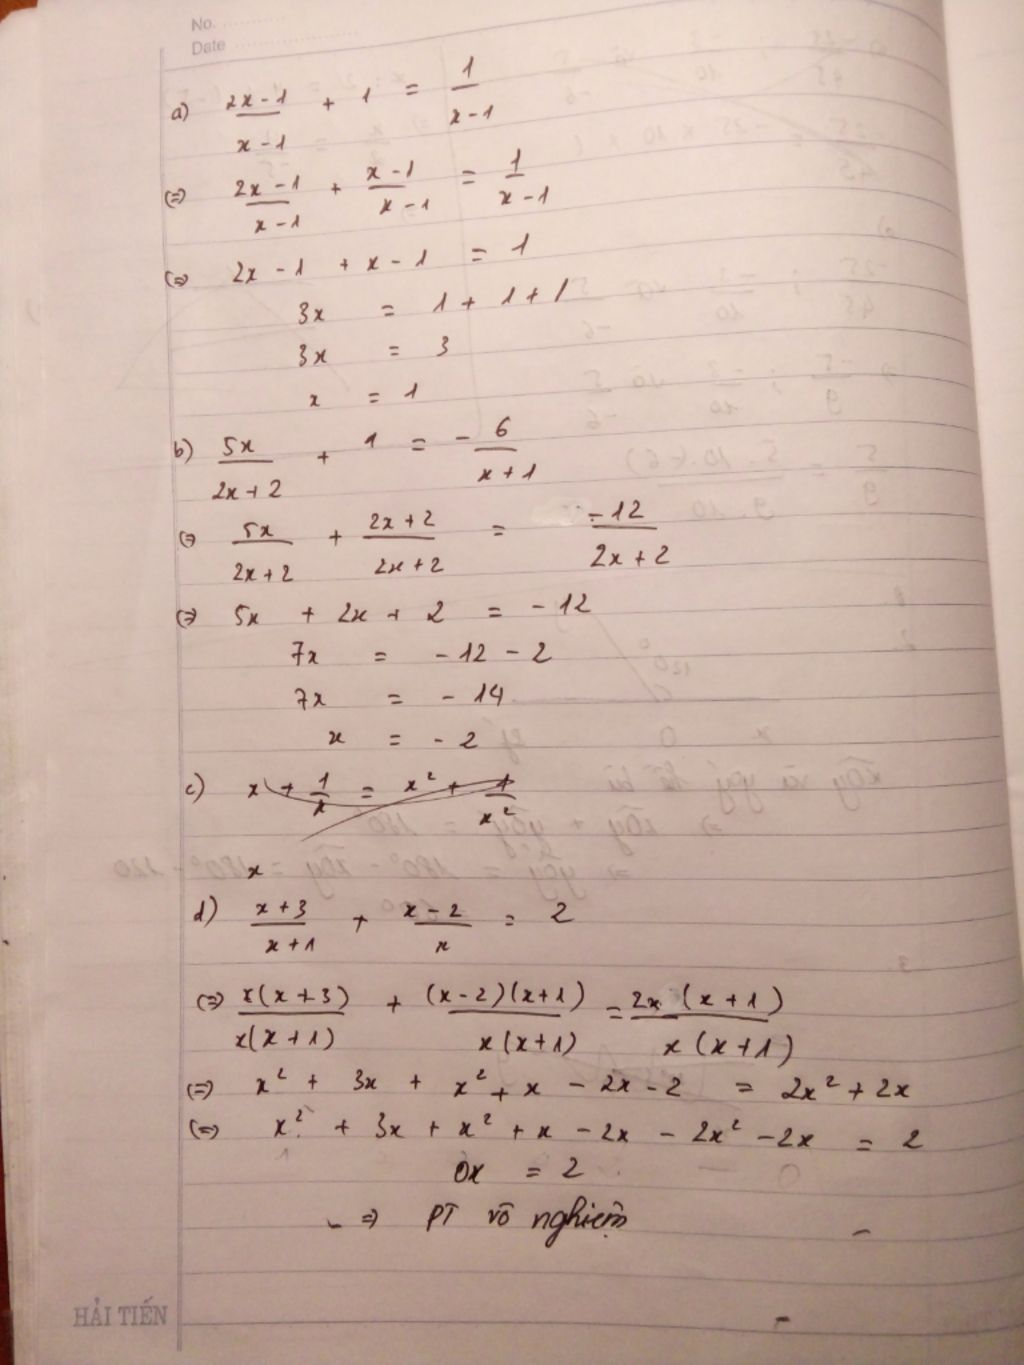 No. ............
Date ....................
a) (2x - 1)/(x - 1) + 1 = 1/(x - 1)
(=) (2x - 1)/(x - 1) + (x - 1)/(x - 1) = 1/(x - 1)
(=) 2x - 1 + x - 1 = 1
3x = 1 + 1 + 1
3x = 3
x = 1
b) 5x/(2x + 2) + 1 = - 6/(x + 1)
(=) 5x/(2x + 2) + (2x + 2)/(2x + 2) = -12/(2x + 2)
(=) 5x + 2x + 2 = - 12
7x = - 12 - 2
7x = - 14
x = - 2
c) x + 1/x = x² + 1/x²
x
d) (x + 3)/(x + 1) + (x - 2)/x = 2
(=) x(x + 3)/x(x + 1) + (x - 2)(x + 1)/x(x + 1) = 2x(x + 1)/x(x + 1)
(=) x² + 3x + x² + x - 2x - 2 = 2x² + 2x
(=) x² + 3x + x² + x - 2x - 2x² - 2x = 2
0x = 2
=) PT vô nghiệm
HẢI TIẾN